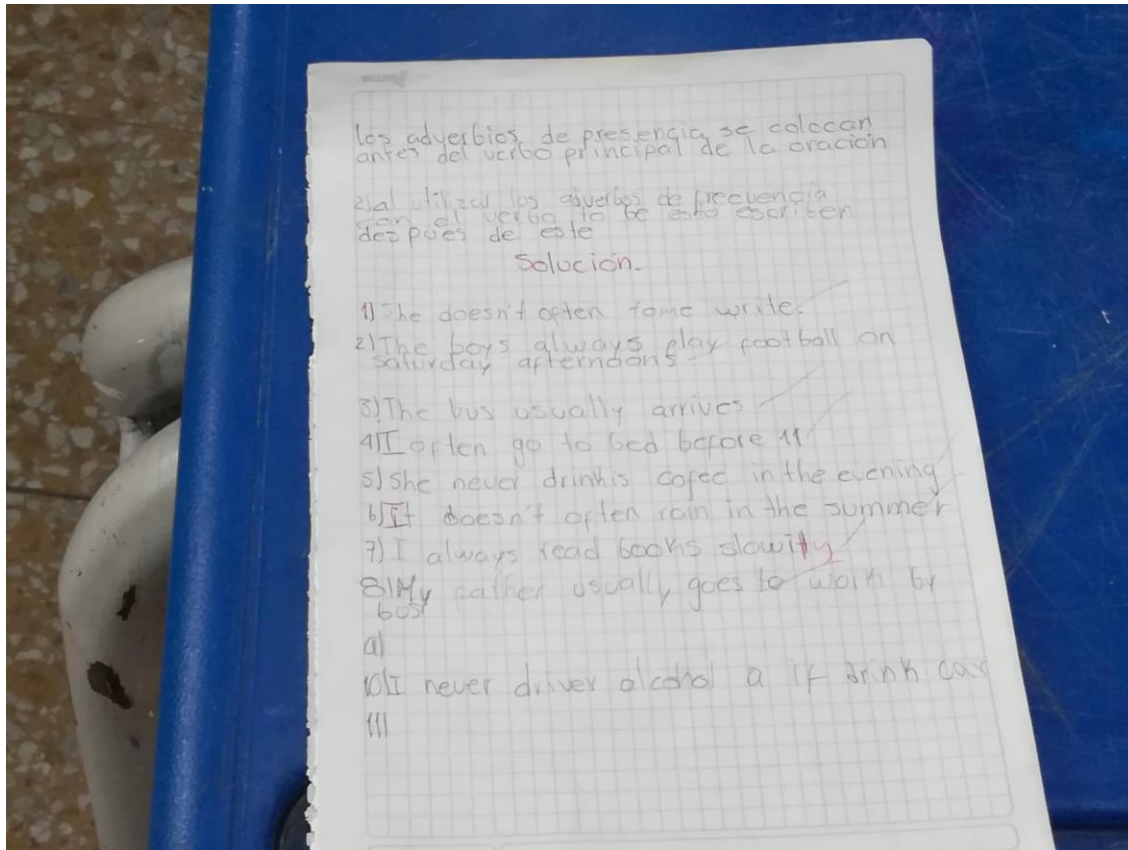 los adverbios de presencia se colocan
antes del verbo principal de la oración
2) al utilizar los adverbos de frecuencia
con el verbo to be esto escriben
despues de este
Solución.
1) She doesn't often tome write.
2) The boys always play football on
saturday afternoons
3) The bus usually arrives
4) I often go to bed before 11
5) She never drinkis cofee in the evening
6) It doesn't often rain in the summer
7) I always read books slowity
8) My father usually goes to work by
bos
a)
10) I never driver alcohol a if drink car
11)